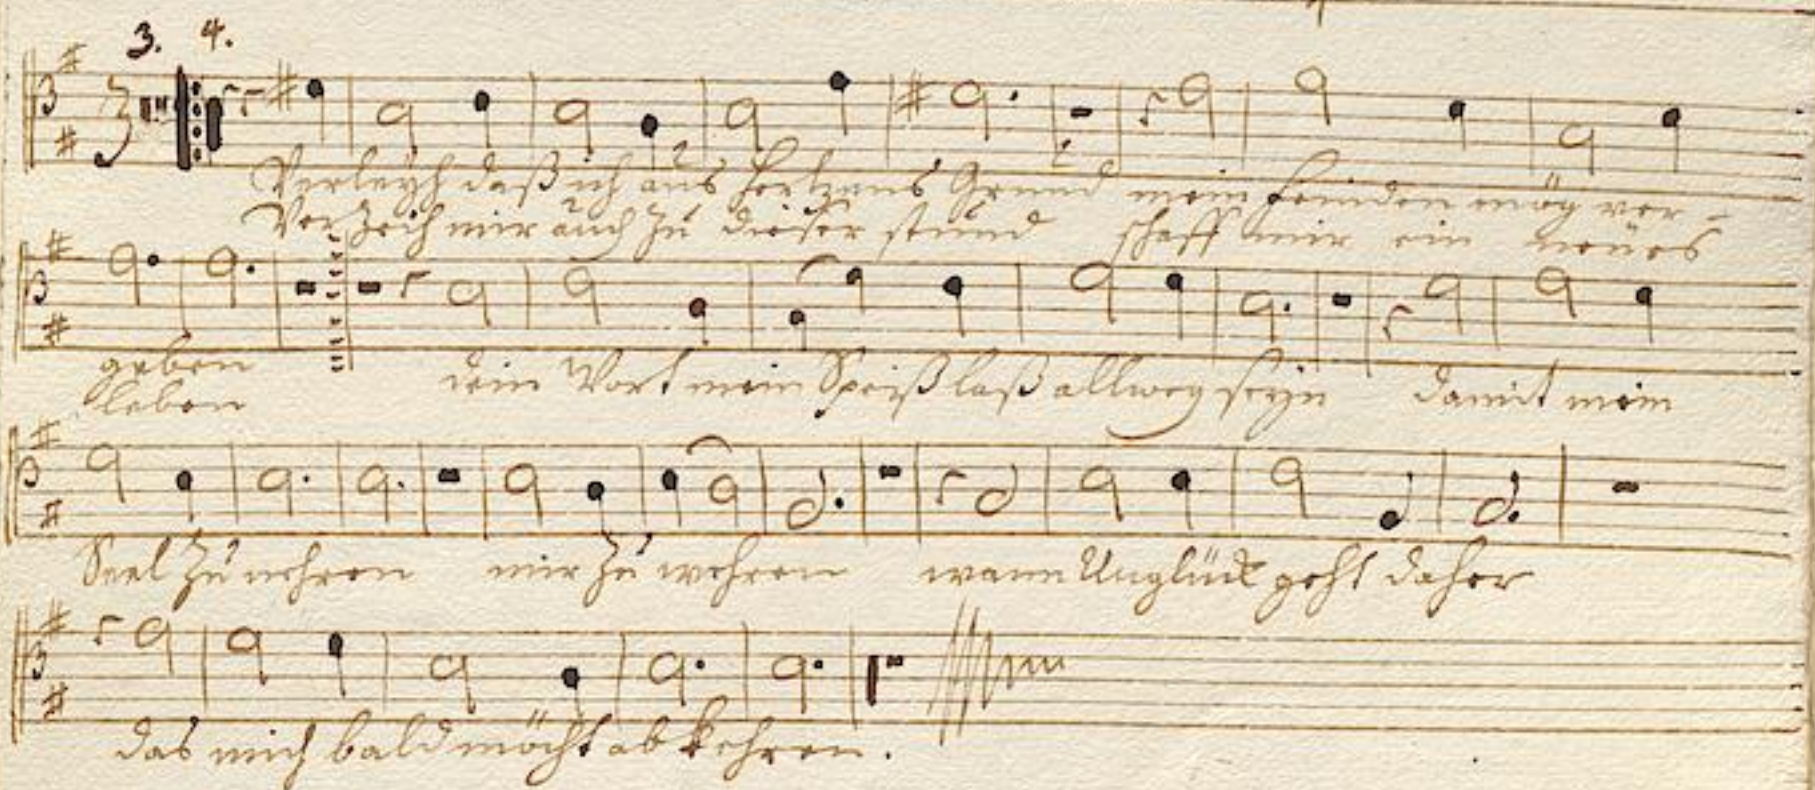 3. 4.
Verleyh daß ich aus Hertzens Grund mein Feinden mög ver-
Verzeih mir auch zu dieser stund schaff mir ein neües
geben dein Wort mein Speiß laß allweg seyn damit mein
leben
Seel zu nehren mir zu wehren wann Unglück geht daher
das mich bald möcht abkehren.